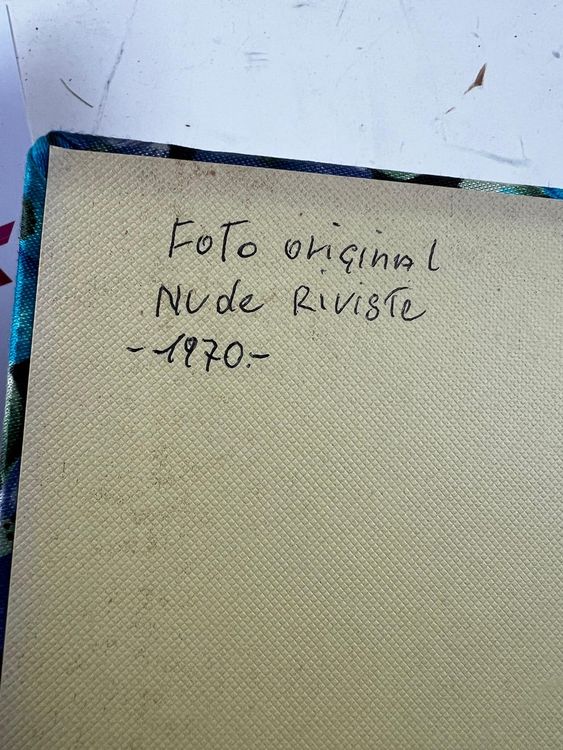 Foto original
Nude Riviste
-1970.-